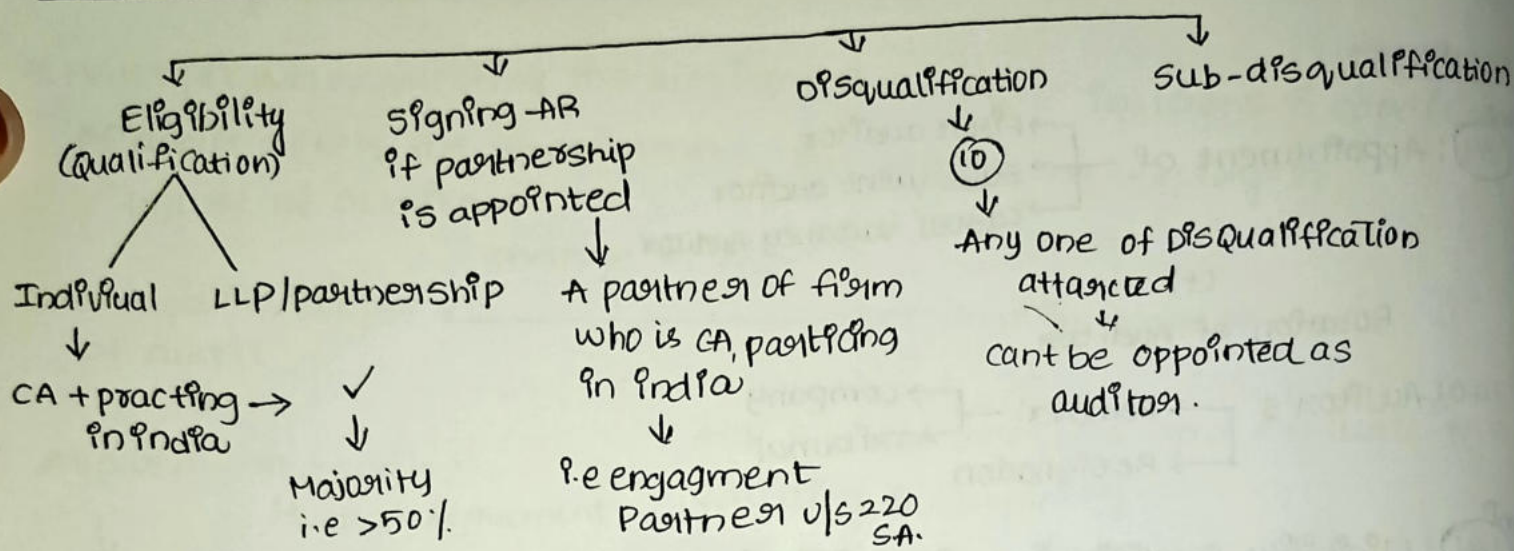 Eligibility
(Qualification)
Indiviual
↓
CA + practing →
in india
LLP/partnership
✓
↓
Majority
i.e >50%.
signing AR
if partnership
is appointed
↓
A partner of firm
who is CA, particing
in india
↓
i.e engagment
Partner u/s 220
SA.
Disqualification
↓
10
↓
Any one of DisQualification
attarcted
↓
cant be oppointed as
auditor.
Sub-disqualification